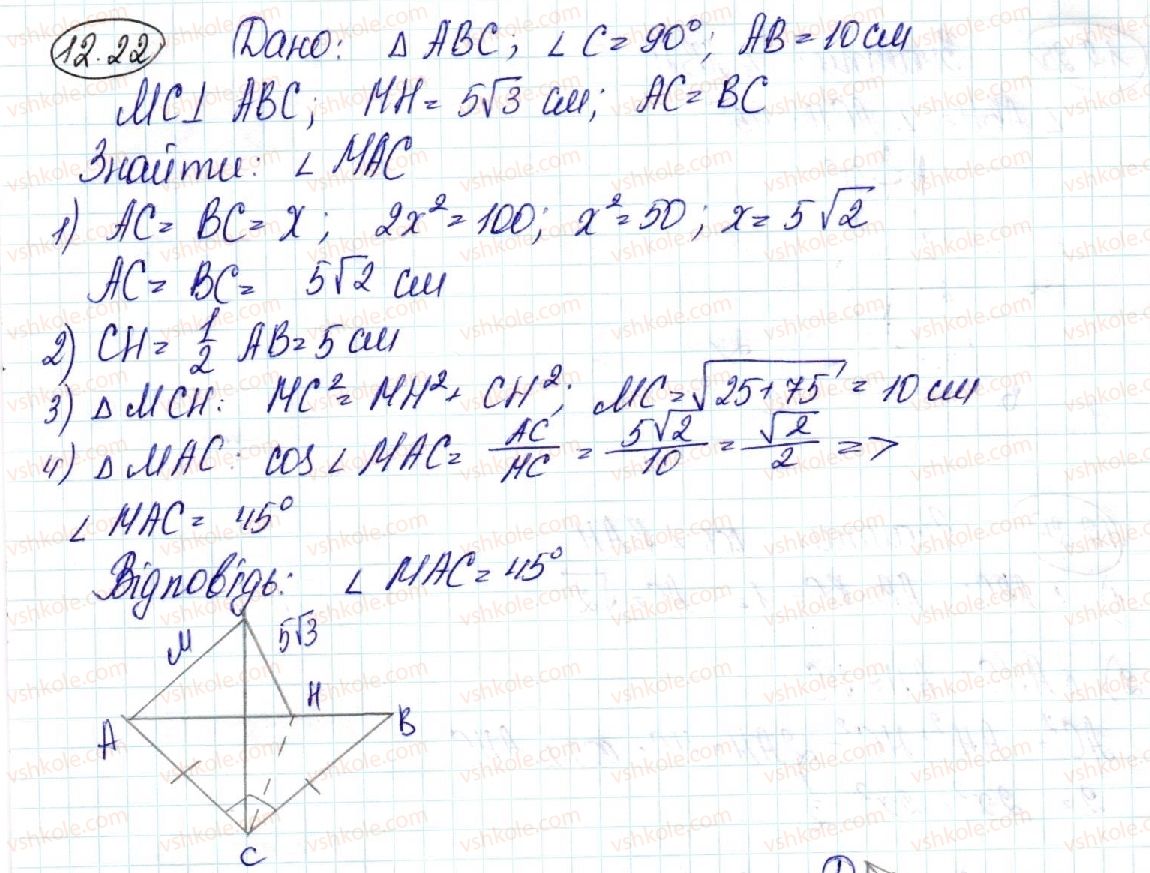 12.22 Дано: △ ABC; ∠ C = 90°; AB = 10 см
MC⊥ ABC; MH = 5√3 см; AC = BC
Знайти: ∠ MAC
1) AC = BC = x; 2x² = 100; x² = 50; x = 5√2
AC = BC = 5√2 см
2) CH = 1/2 AB = 5 см
3) △ MCH: MC² = MH² + CH²; MC = √25+75 = 10 см
4) △ MAC: cos ∠ MAC = AC/MC = 5√2/10 = √2/2 =>
∠ MAC = 45°
Відповідь: ∠ MAC = 45°
M
5√3
H
A
B
C